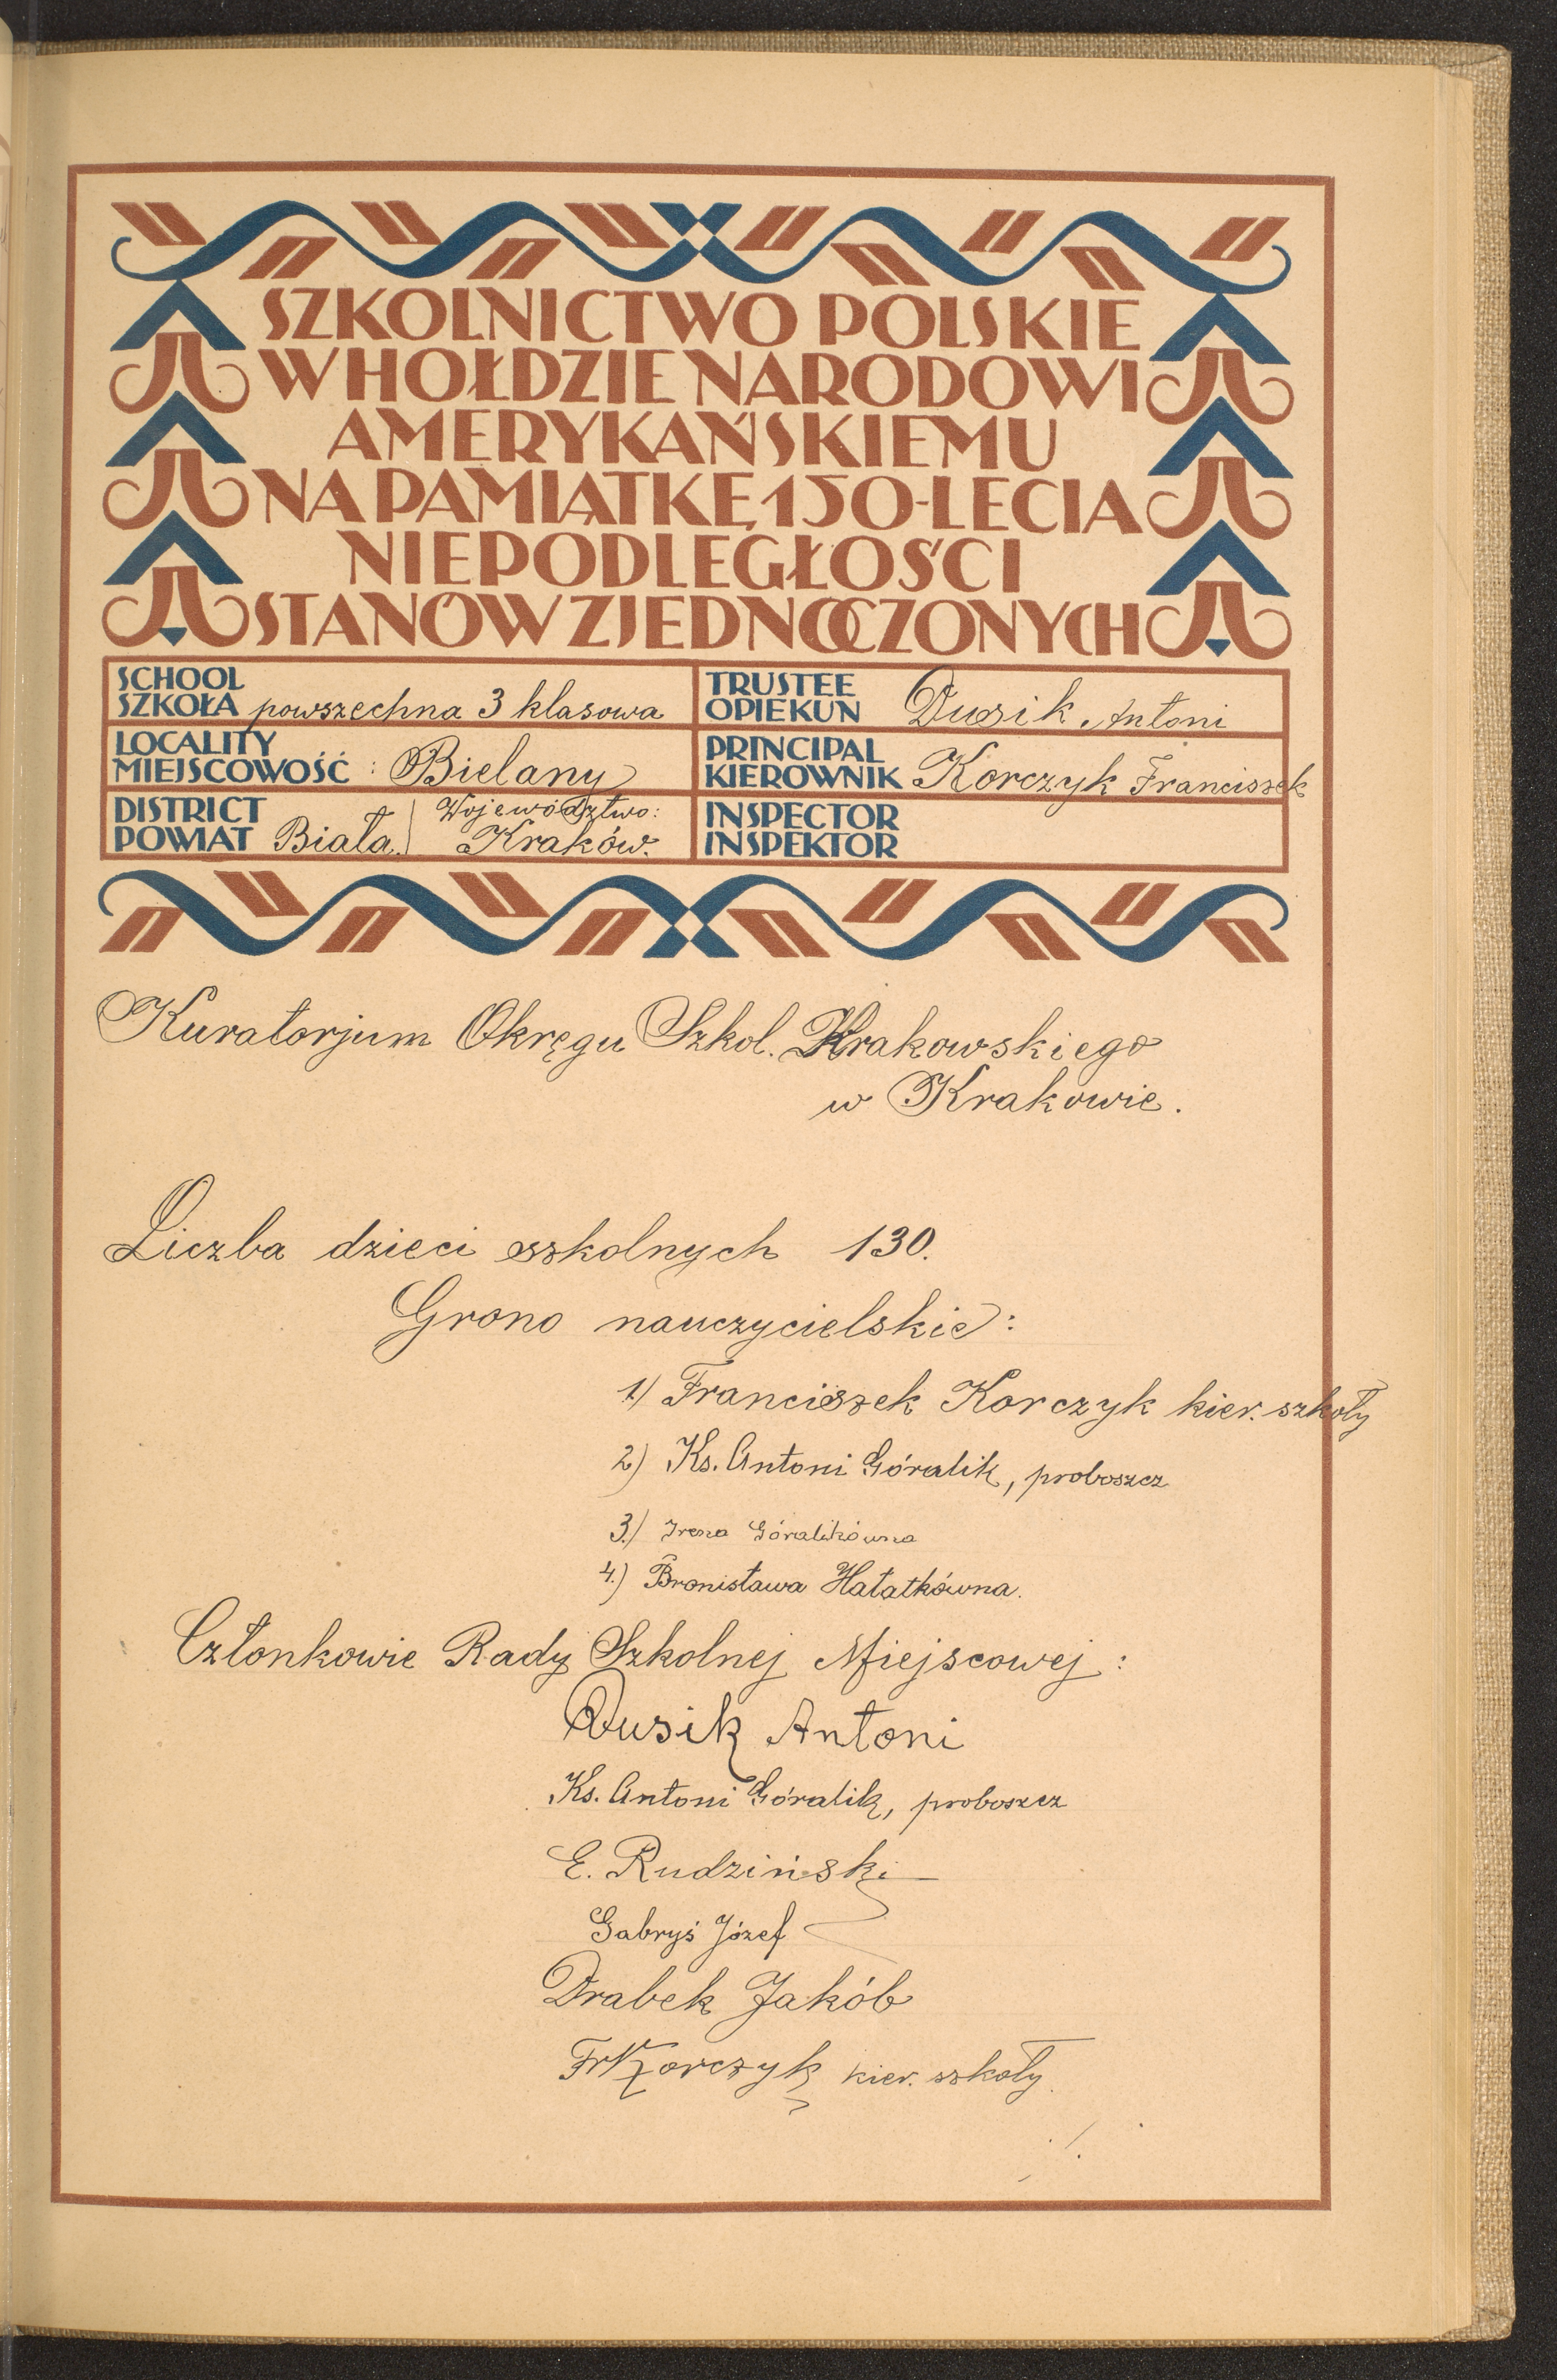 SZKOLNICTWO POLSKIE
W HOŁDZIE NARODOWI
AMERYKAŃSKIEMU
NA PAMIĄTKĘ 150-LECIA
NIEPODLEGŁOŚCI
STANÓW ZJEDNOCZONYCH
SCHOOL
SZKOŁA powszechna 3 klasowa
TRUSTEE
OPIEKUN Dusik Antoni
LOCALITY
MIEJSCOWOŚĆ : Bielany
PRINCIPAL
KIEROWNIK Korczyk Franciszek
DISTRICT Województwo:
POWIAT Biała Kraków.
INSPECTOR
INSPEKTOR
Kuratorjum Okręgu Szkol. Krakowskiego
w Krakowie.
Liczba dzieci szkolnych 130.
Grono nauczycielskie:
1) Franciszek Korczyk kier. szkoły
2) Ks. Antoni Góralik, proboszcz
3.) Irena Góralikówna
4.) Bronisława Hałatkówna.
Członkowie Rady Szkolnej Miejscowej:
Dusik Antoni
Ks. Antoni Góralik, proboszcz
E. Rudziński
Gabryś Józef
Drabek Jakób
Fr Korczyk kier. szkoły